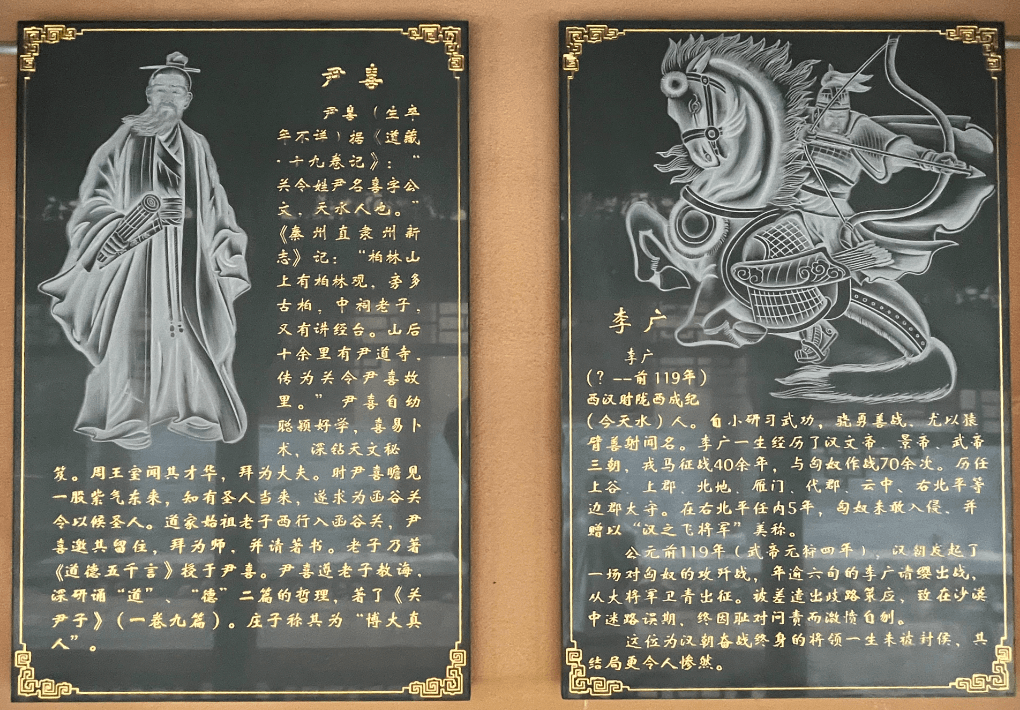 尹喜
尹喜（生卒
年不详）据《道藏
·十九卷记》：“
关令姓尹名喜字公
文，天水人也。”
《秦州直隶州新
志》记：“柏林山
上有柏林观，旁多
古柏，中祠老子，
又有讲经台。山后
十余里有尹道寺，
传为关令尹喜故
里。”尹喜自幼
聪颖好学，喜易卜
术，深钻天文秘
笈。周王室闻其才华，拜为大夫。时尹喜瞻见
一股紫气东来，知有圣人当来，遂求为函谷关
令以候圣人。道家始祖老子西行入函谷关，尹
喜邀其留住，拜为师，并请著书。老子乃著
《道德五千言》授于尹喜。尹喜遵老子教诲，
深研诵“道”、“德”二篇的哲理，著了《关
尹子》（一卷九篇）。庄子称其为“博大真
人”。
李广
李广
（？--前119年）
西汉时陇西成纪
（今天水）人。自小研习武功，骁勇善战，尤以猿
臂善射闻名。李广一生经历了汉文帝、景帝、武帝
三朝，戎马征战40余年，与匈奴作战70余次。历任
上谷、上郡、北地、雁门、代郡、云中、右北平等
边郡太守。在右北平任内5年，匈奴未敢入侵，并
赠以“汉之飞将军”美称。
公元前119年（武帝元狩四年），汉朝发起了
一场对匈奴的攻歼战，年逾六旬的李广请缨出战，
从大将军卫青出征。被差遣出歧路策应，致在沙漠
中迷路误期，终因耻对问责而激愤自刎。
这位为汉朝奋战终身的将领一生未被封侯，其
结局更令人惨然。